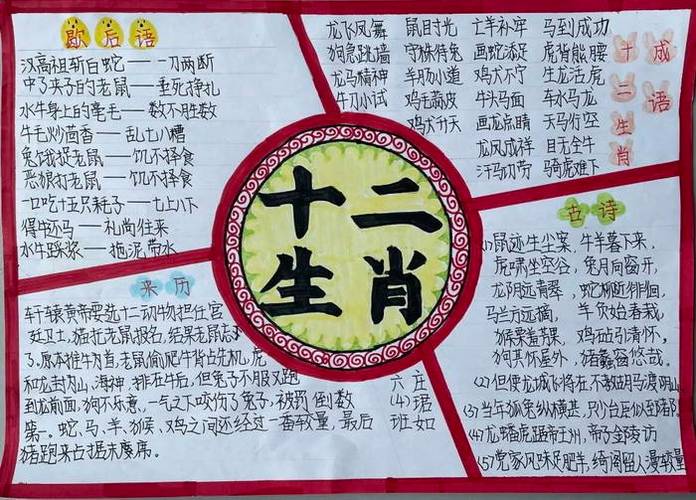 歇后语
汉高祖斩白蛇——一刀两断
中了夹子的老鼠——垂死挣扎
水牛身上的毫毛——数不胜数
牛毛炒茴香——乱七八糟
兔饿捉老鼠——饥不择食
恶狼打老鼠——饥不择食
一口吃十五只耗子——七上八下
得牛还马——礼尚往来
水牛踩浆——拖泥带水
龙飞凤舞 鼠目寸光 亡羊补牢 马到成功
狗急跳墙 守株待兔 画蛇添足 虎背熊腰
龙马精神 羊肠小道 鸡犬不宁 生龙活虎
牛刀小试 鸡毛蒜皮 牛头马面 车水马龙
鸡犬升天 画龙点睛 天马行空
龙凤成祥 目无全牛
汗马功劳 骑虎难下
十二生肖
成语
十二
生肖
来历
轩辕黄帝要选十二动物担任宫
廷卫士，猫托老鼠报名，结果老鼠忘
了。原本推牛为首，老鼠偷爬牛背占先机，虎
和龙封为山，海神，排在牛后，但兔子不服又跑
到龙前面，狗不乐意，一气之下咬伤了兔子，被罚倒数
第一。蛇、马、羊、猴、鸡之间还经过一番较量，最后
猪跑来占据末席。
六(4)班
庄珺如
古诗
鼠迹生尘案，牛羊暮下来，
虎啸坐空谷，兔月向窗开，
龙阴远青翠，蛇柳近徘徊，
马兰方远摘，羊负始春栽，
猴栗羞芳果，鸡砧引清怀，
狗其怀屋外，猪蠡窗悠哉。
(2)但使龙城飞将在，不教胡马渡阴山
(3)当年狐兔纵横甚，
(4)龙蟠虎踞帝王州，帝子金陵访
(5)党家风味足肥羊，绮阁留人漫较量